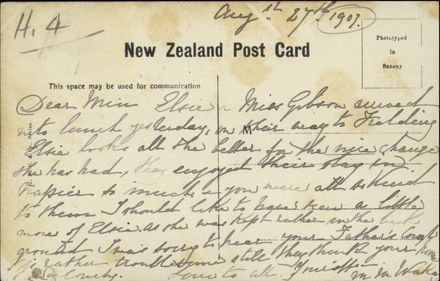 H. 4
Augst 27th 1907.
New Zealand Post Card
Phototyped
in
Saxony
This space may be used for communication
Dear Min Elsie & Miss Gibson arrived
to lunch yesterday, on their way to Feilding
Elsie looks all the better for the nice change
she has had, they enjoyed their stay in
Napier so much & you were all so kind
to them I should like to have seen a little
more of Elsie as she was kept rather in the back
ground I was sorry to hear your Father's Cough
is rather troublesome still they think your
Love to all.